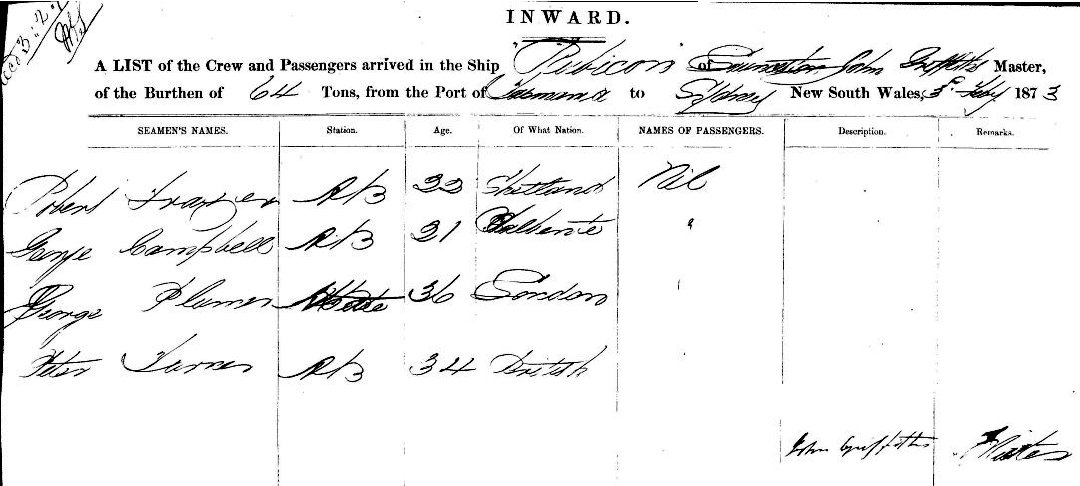 INWARD.
A LIST of the Crew and Passengers arrived in the Ship "Rubicon" of Launceston John Griffiths Master,
of the Burthen of 64 Tons, from the Port of Tasmania to Sydney New South Wales, 3rd Feby 1873
SEAMEN'S NAMES. Station. Age. Of What Nation. NAMES OF PASSENGERS. Description. Remarks.
Robert Frazer AB 22 Shetland Nil
George Campbell AB 21 "
George Plumer 36 London
Peter Turner AB 34 British
John Griffiths